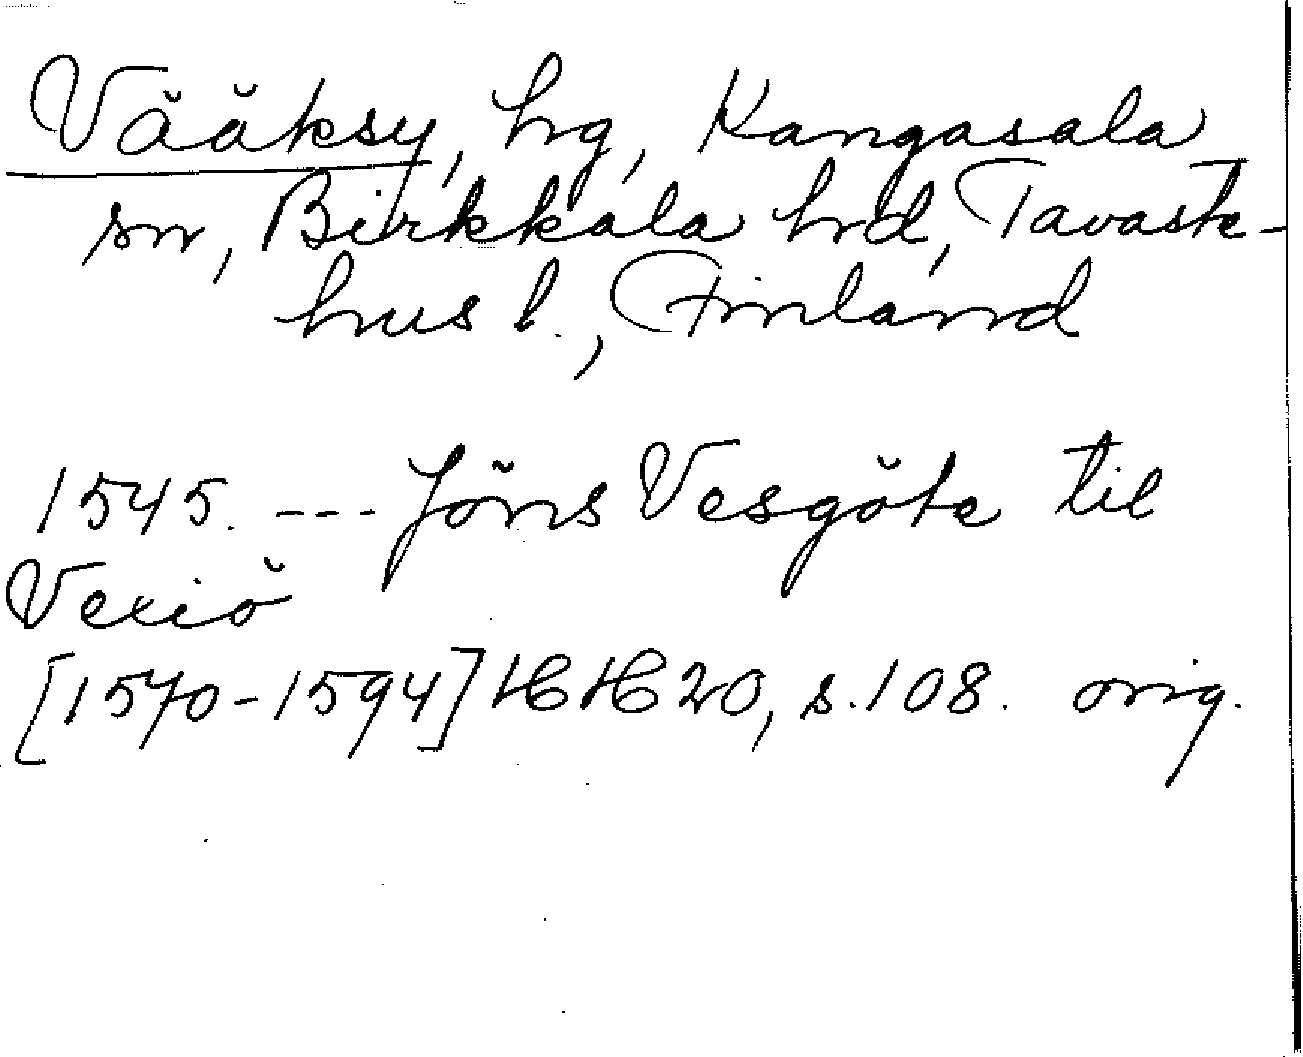 Vääksy, hg, Kangasala
sn, Birkkala hrd, Tavaste-
hus l., Finland
1545. --- Jöns Vesgöte til
Vexiö
[1570-1594] HH 20, s. 108. orig.